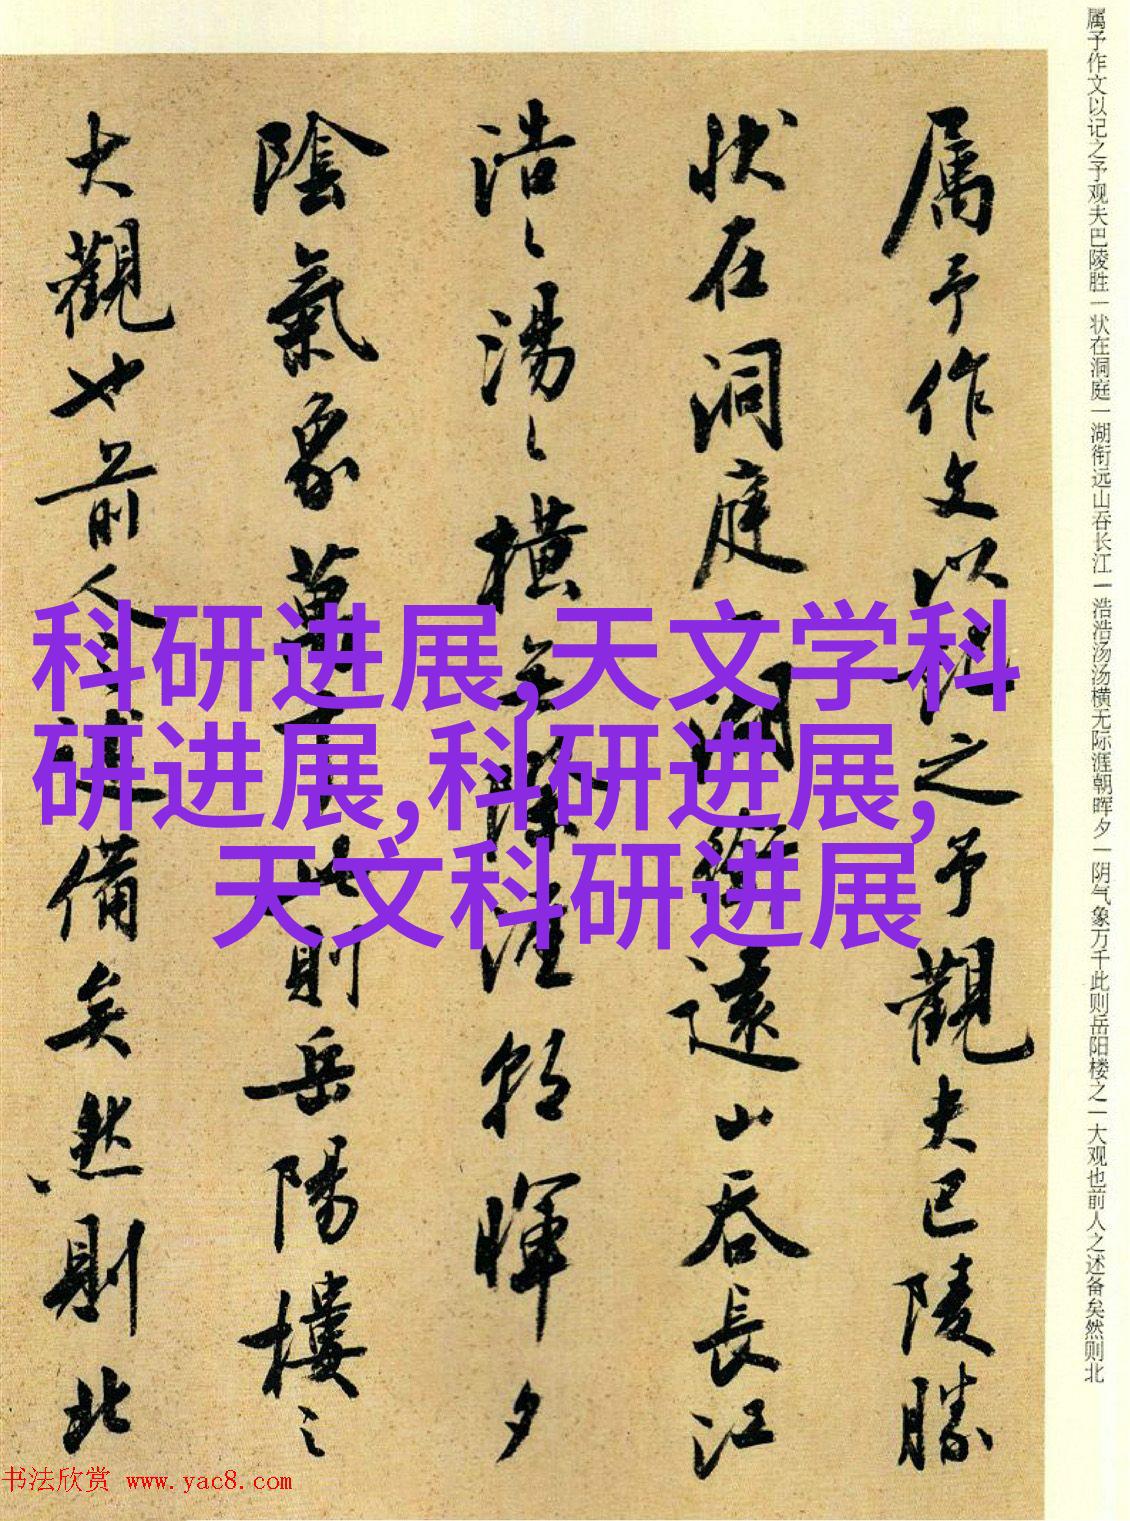 属予作文以记之予观夫巴陵胜一状在洞庭一湖衔远山吞长江一浩浩汤汤横无际涯朝晖夕一阴气象万千此则岳阳楼之一大观也前人之述备矣然则北
属予作文以记之予觀夫巴陵勝
状在洞庭一湖銜遠山吞長江
浩〻湯〻橫無際涯朝暉夕
陰氣象萬千此則岳陽樓之
大觀也前人之述備矣然則北
科研进展,天文学科
研进展,科研进展,
天文科研进展
书法欣赏 www.yac8.com